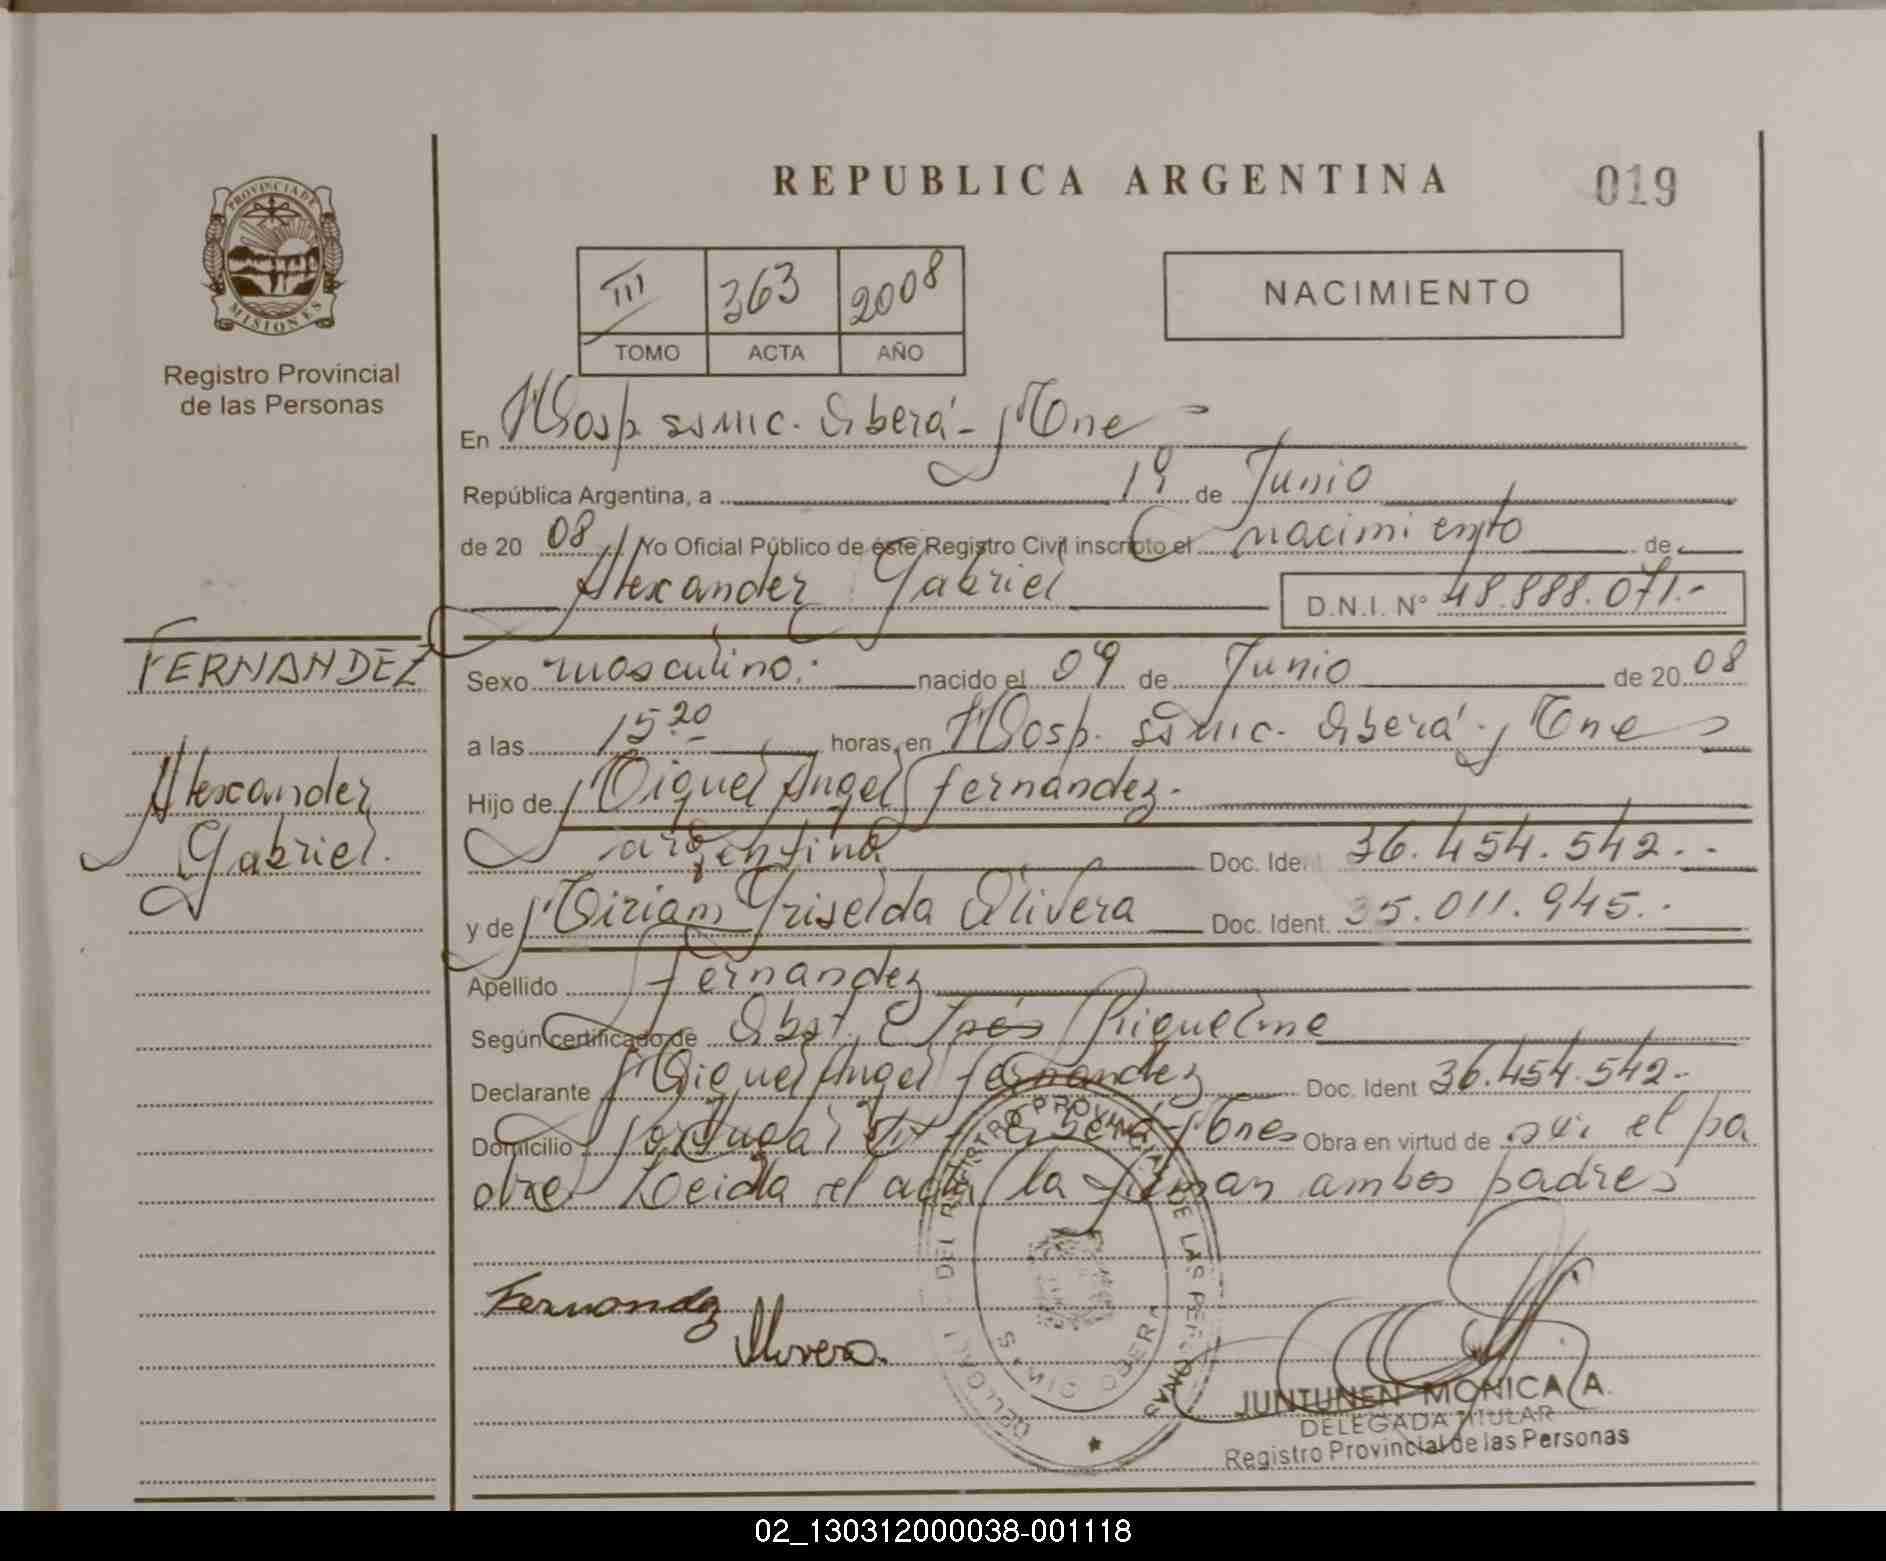 REPUBLICA ARGENTINA
019
PROVINCIA DE
MISIONES
Registro Provincial
de las Personas
III 363 2008
TOMO ACTA AÑO
NACIMIENTO
En Hosp ssmic. Oberá - Mnes
República Argentina, a 19 de Junio
de 20 08 Yo Oficial Público de éste Registro Civil inscripto el nacimiento de
Alexander Gabriel
D.N.I. Nº 48.888.071.-
FERNANDEZ
Alexander
Gabriel.
Sexo masculino. nacido el 09 de Junio de 20 08
a las 15.20 horas, en Hosp. ssmic. Oberá - Mnes
Hijo de Miguel Angel Fernandez.
argentina Doc. Ident 36.454.542.-
y de Miriam Griselda Olivera Doc. Ident. 35.011.945.-
Apellido Fernandez
Según certificado de Obst. Inés Riquelme
Declarante Miguel Angel Fernandez Doc. Ident 36.454.542.-
Domicilio Portugal Oberá - Mnes Obra en virtud de ser el pa
dre Leida el acta la firman ambos padres
Fernandez
Olivera.
REGISTRO PROVINCIAL DE LAS PERSONAS
JUNTUNEN MONICA A.
DELEGADA TITULAR
Registro Provincial de las Personas
02_130312000038-001118